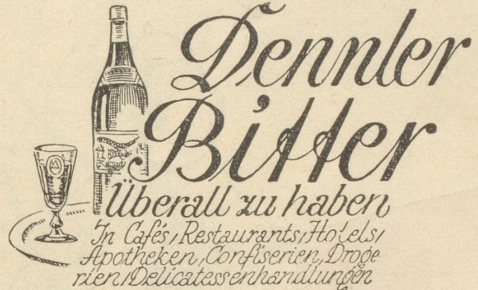 Dennler
Bitter
Überall zu haben
In Cafés, Restaurants, Hotels,
Apotheken, Confiserien, Droge
rien, Delicatessenhandlungen